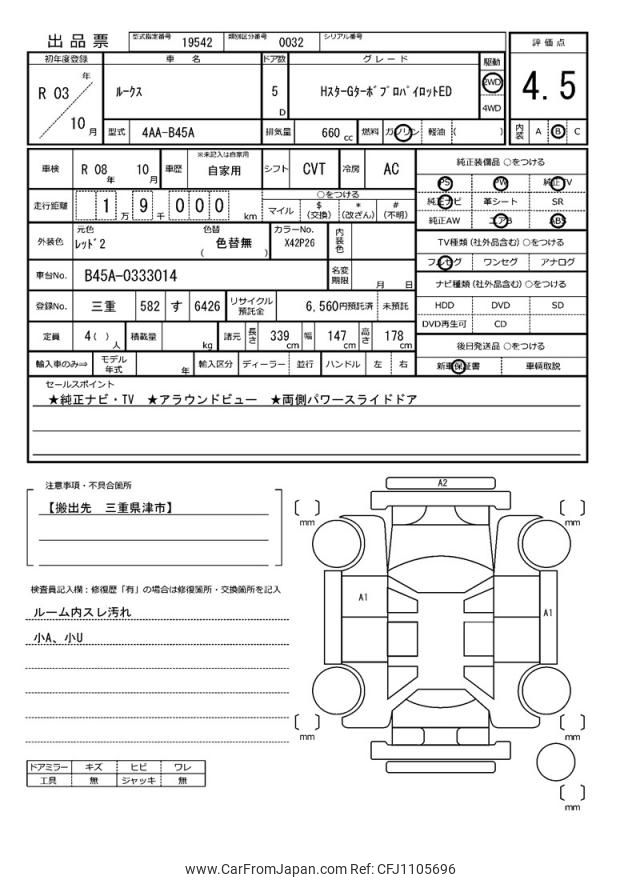 出品票 型式指定番号 19542 類別区分番号 0032 シリアル番号
評価点
4.5
内装 A B C
初年度登録 車名 ドア数 グレード 駆動
R 03 年 10 月
ルークス 5 D HスターGターボプロパイロットED 2WD 4WD
型式 4AA-B45A 排気量 660 cc 燃料 ガソリン 軽油 ( )
車検 R 08 年 10 月 車歴 ※未記入は自家用 自家用 シフト CVT 冷房 AC
走行距離 1 万 9 千 0 0 0 km ○をつける
マイル $ (交換) * (改ざん) # (不明)
外装色 元色 レッド2 色替 ( 色替無 ) カラーNo. X42P26 内装色
車台No. B45A-0333014 名変期限 月 日
登録No. 三重 582 す 6426 リサイクル預託金 6,560円預託済 未預託
定員 4( )人 積載量 kg 諸元 長さ 339 cm 幅 147 cm 高さ 178 cm
輸入車のみ⇒ モデル年式 年 輸入区分 ディーラー 並行 ハンドル 左 右
純正装備品 ○をつける
PS PW 純正TV
純正ナビ 革シート SR
純正AW エアB ABS
TV種類 (社外品含む) ○をつける
フルセグ ワンセグ アナログ
ナビ種類 (社外品含む) ○をつける
HDD DVD SD
DVD再生可 CD
後日発送品 ○をつける
新車保証書 車輌取説
セールスポイント
★純正ナビ・TV ★アラウンドビュー ★両側パワースライドドア
注意事項・不具合箇所
【搬出先 三重県津市】
検査員記入欄：修復歴「有」の場合は修復箇所・交換箇所を記入
ルーム内スレ汚れ
小A、小U
ドアミラー キズ ヒビ ワレ
工具 無 ジャッキ 無
A2
A1
A1
[ ] mm
[ ] mm
[ ] mm
[ ] mm
[ ] mm
www.CarFromJapan.com Ref: CFJ1105696